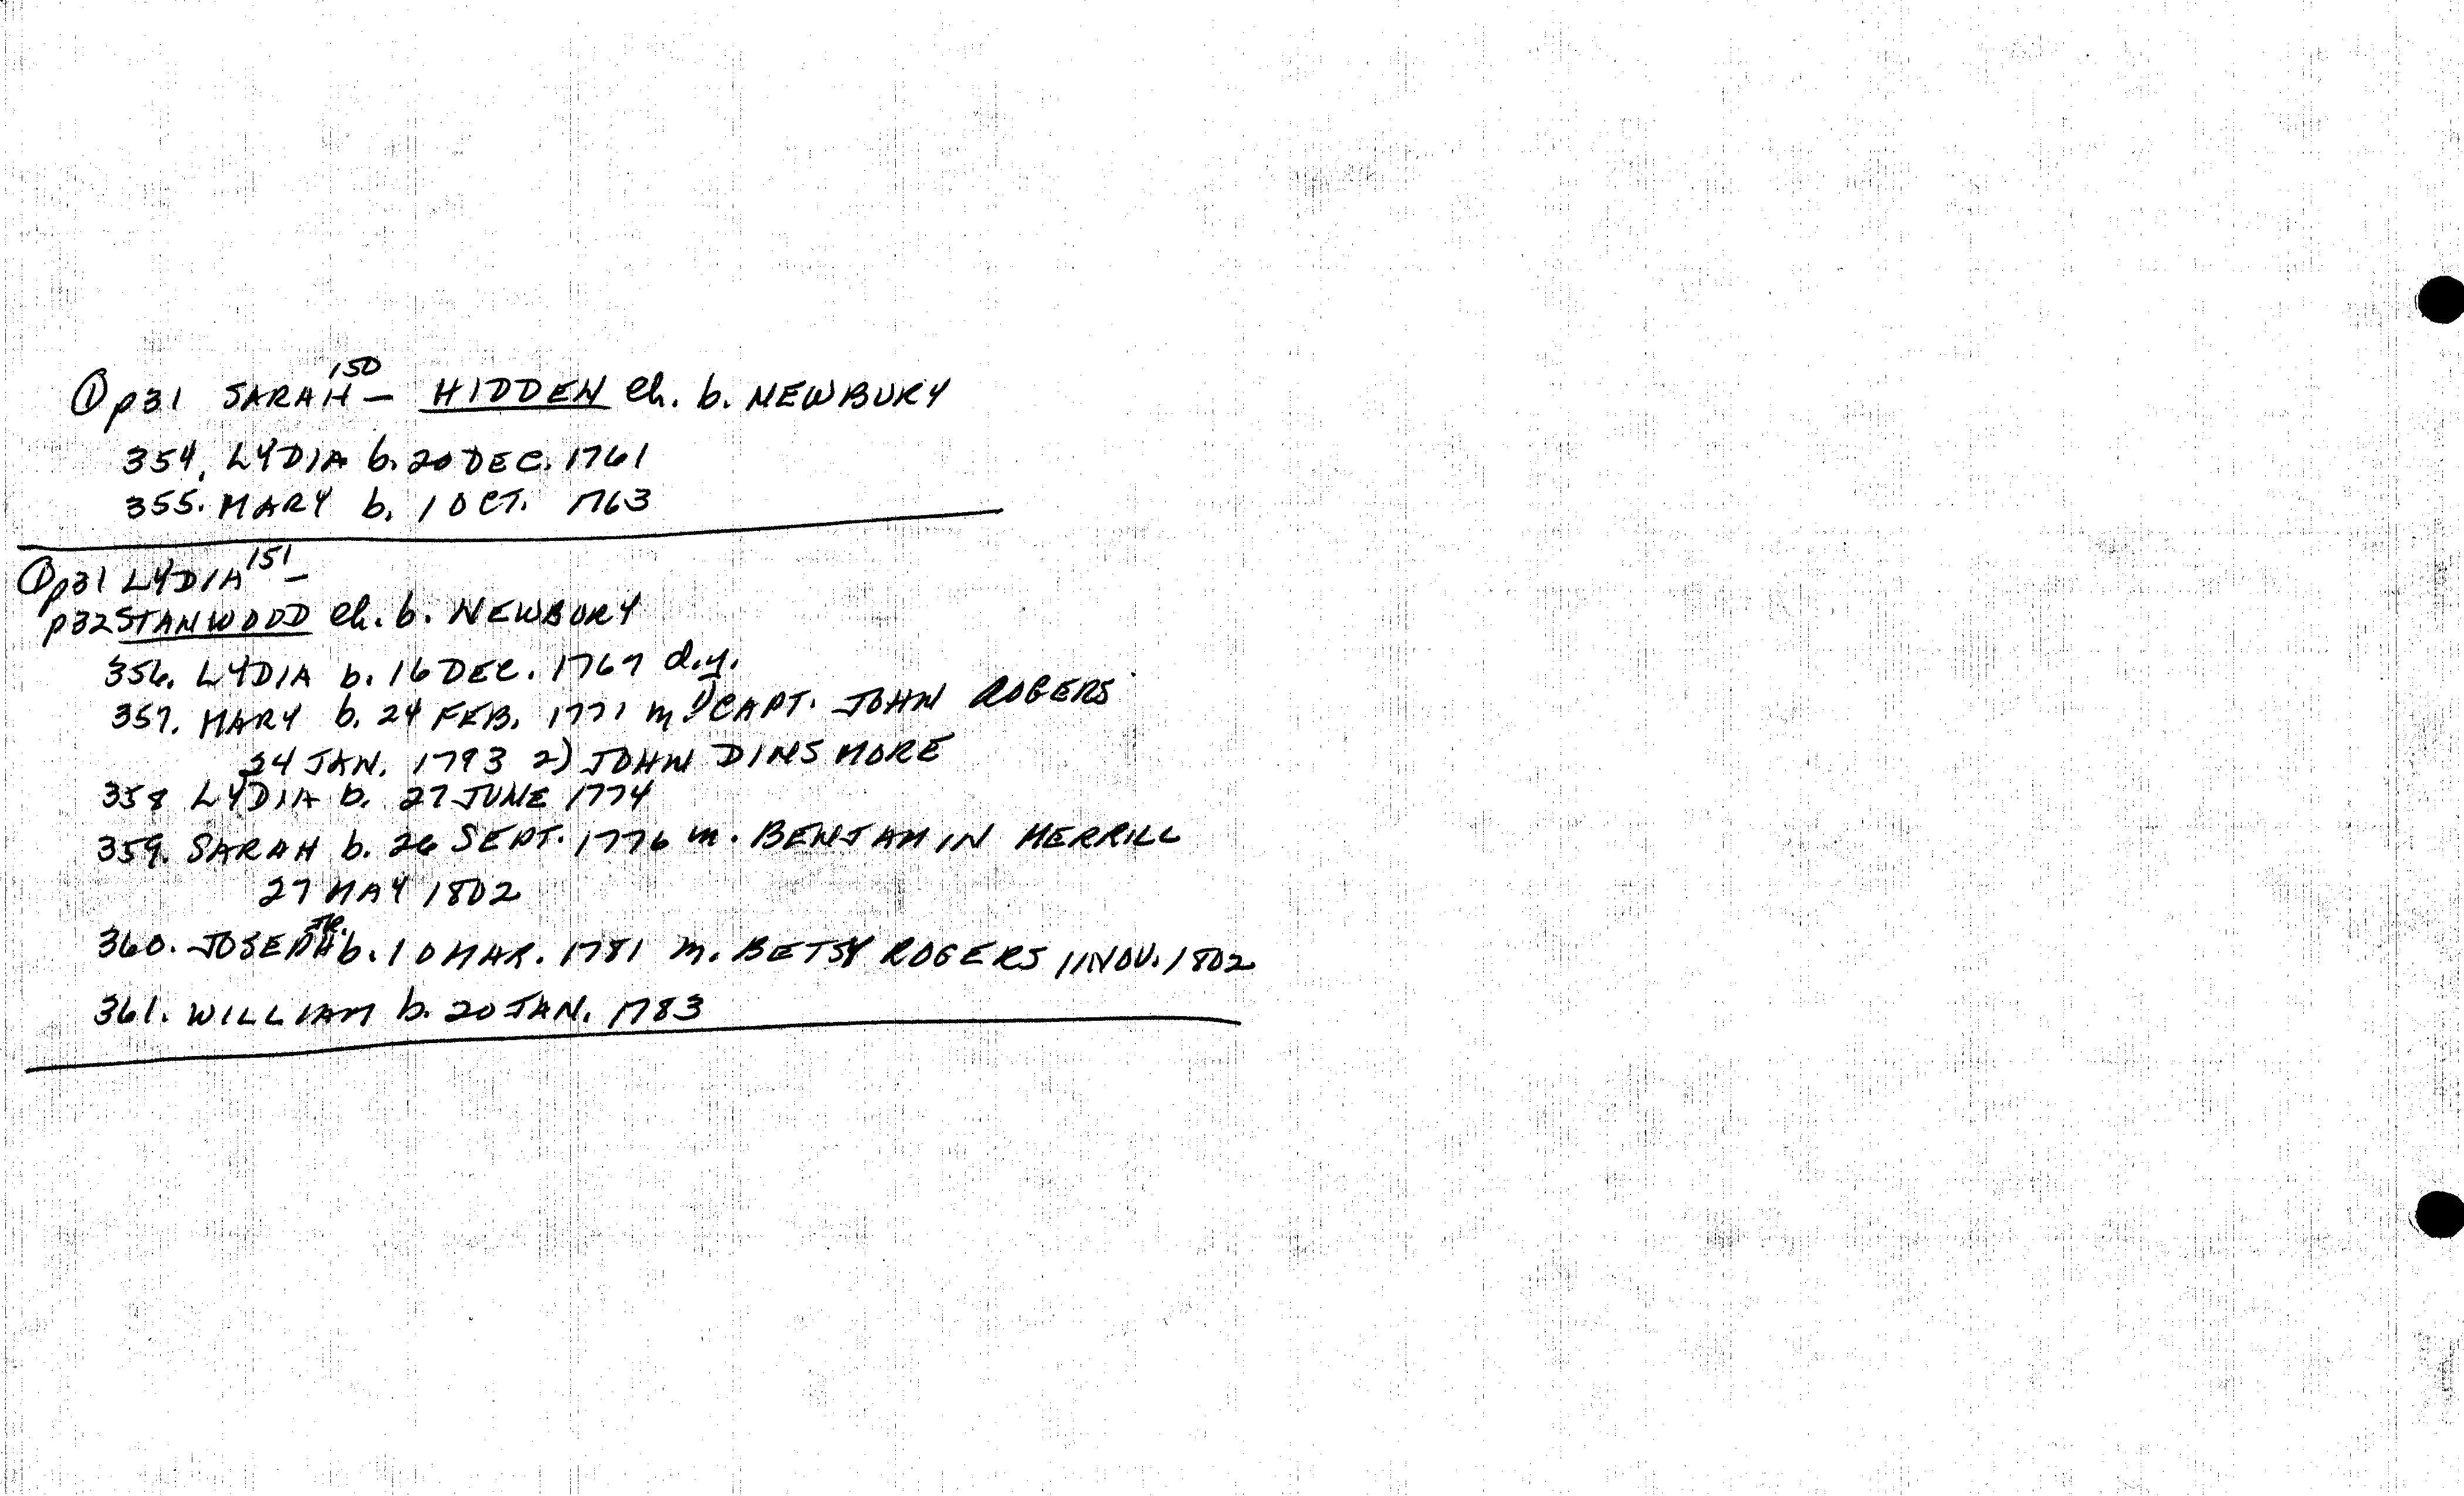 ① p31 SARAH 150 — HIDDEN Ch. b. NEWBURY
354. LYDIA b. 20 DEC. 1761
355. MARY b. 1 OCT. 1763
① p31 LYDIA 151 —
p32 STANWOOD Ch. b. NEWBURY
356. LYDIA b. 16 DEC. 1767 d.y.
357. MARY b. 24 FEB. 1771 m. 1) CAPT. JOHN ROGERS
24 JAN. 1793 2) JOHN DINSMORE
358 LYDIA b. 27 JUNE 1774
359. SARAH b. 26 SEPT. 1776 m. BENJAMIN MERRILL
27 MAY 1802
360. JOSEPH JR. b. 10 MAR. 1781 m. BETSY ROGERS 11 NOV. 1802
361. WILLIAM b. 20 JAN. 1783